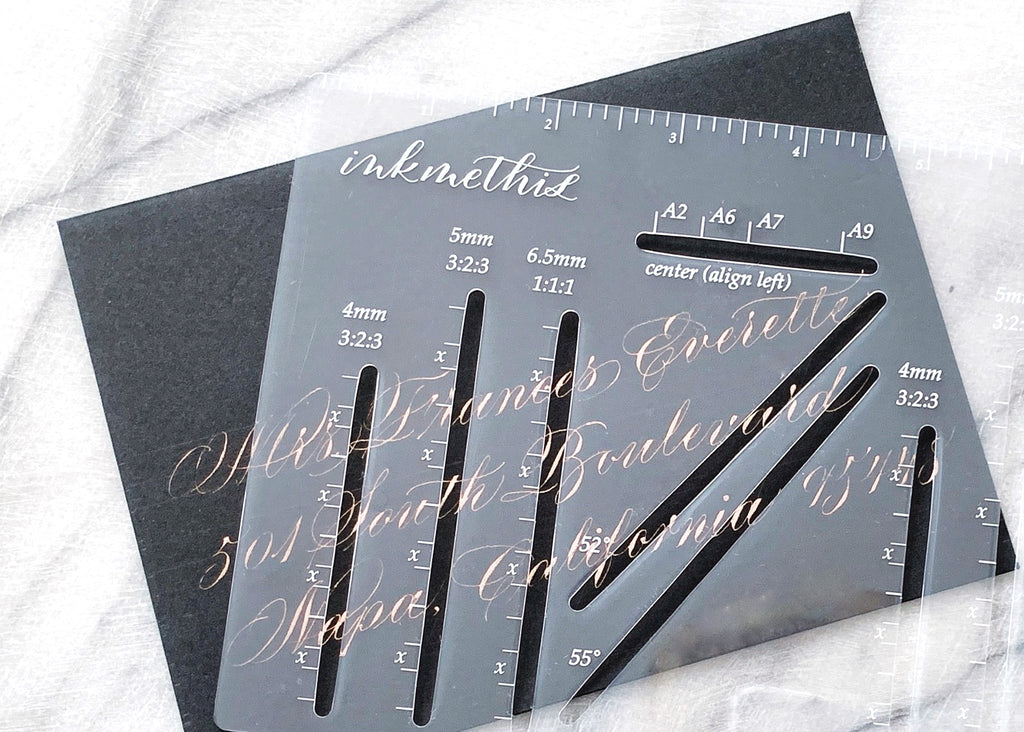 2 3 4 5
inkmethis
A2 A6 A7 A9
center (align left)
5mm
3:2:3
6.5mm
1:1:1
4mm
3:2:3
4mm
3:2:3
5mm
3:2:
52°
55°
x x x x
x x x x
x x x
x x x
x x x
Mrs. Frances Everette
501 South Boulevard
Napa, California